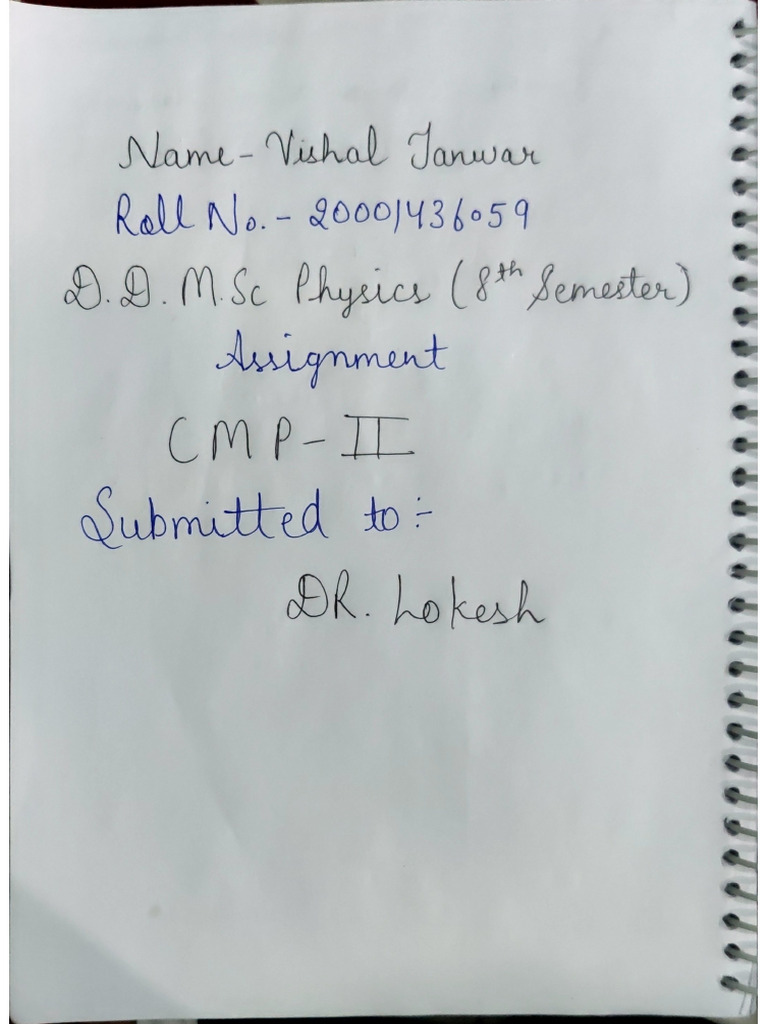 Name - Vishal Tanwar
Roll No. - 20001436059
D.D.M.Sc Physics (8th Semester)
Assignment
CMP - II
Submitted to :-
DR. Lokesh